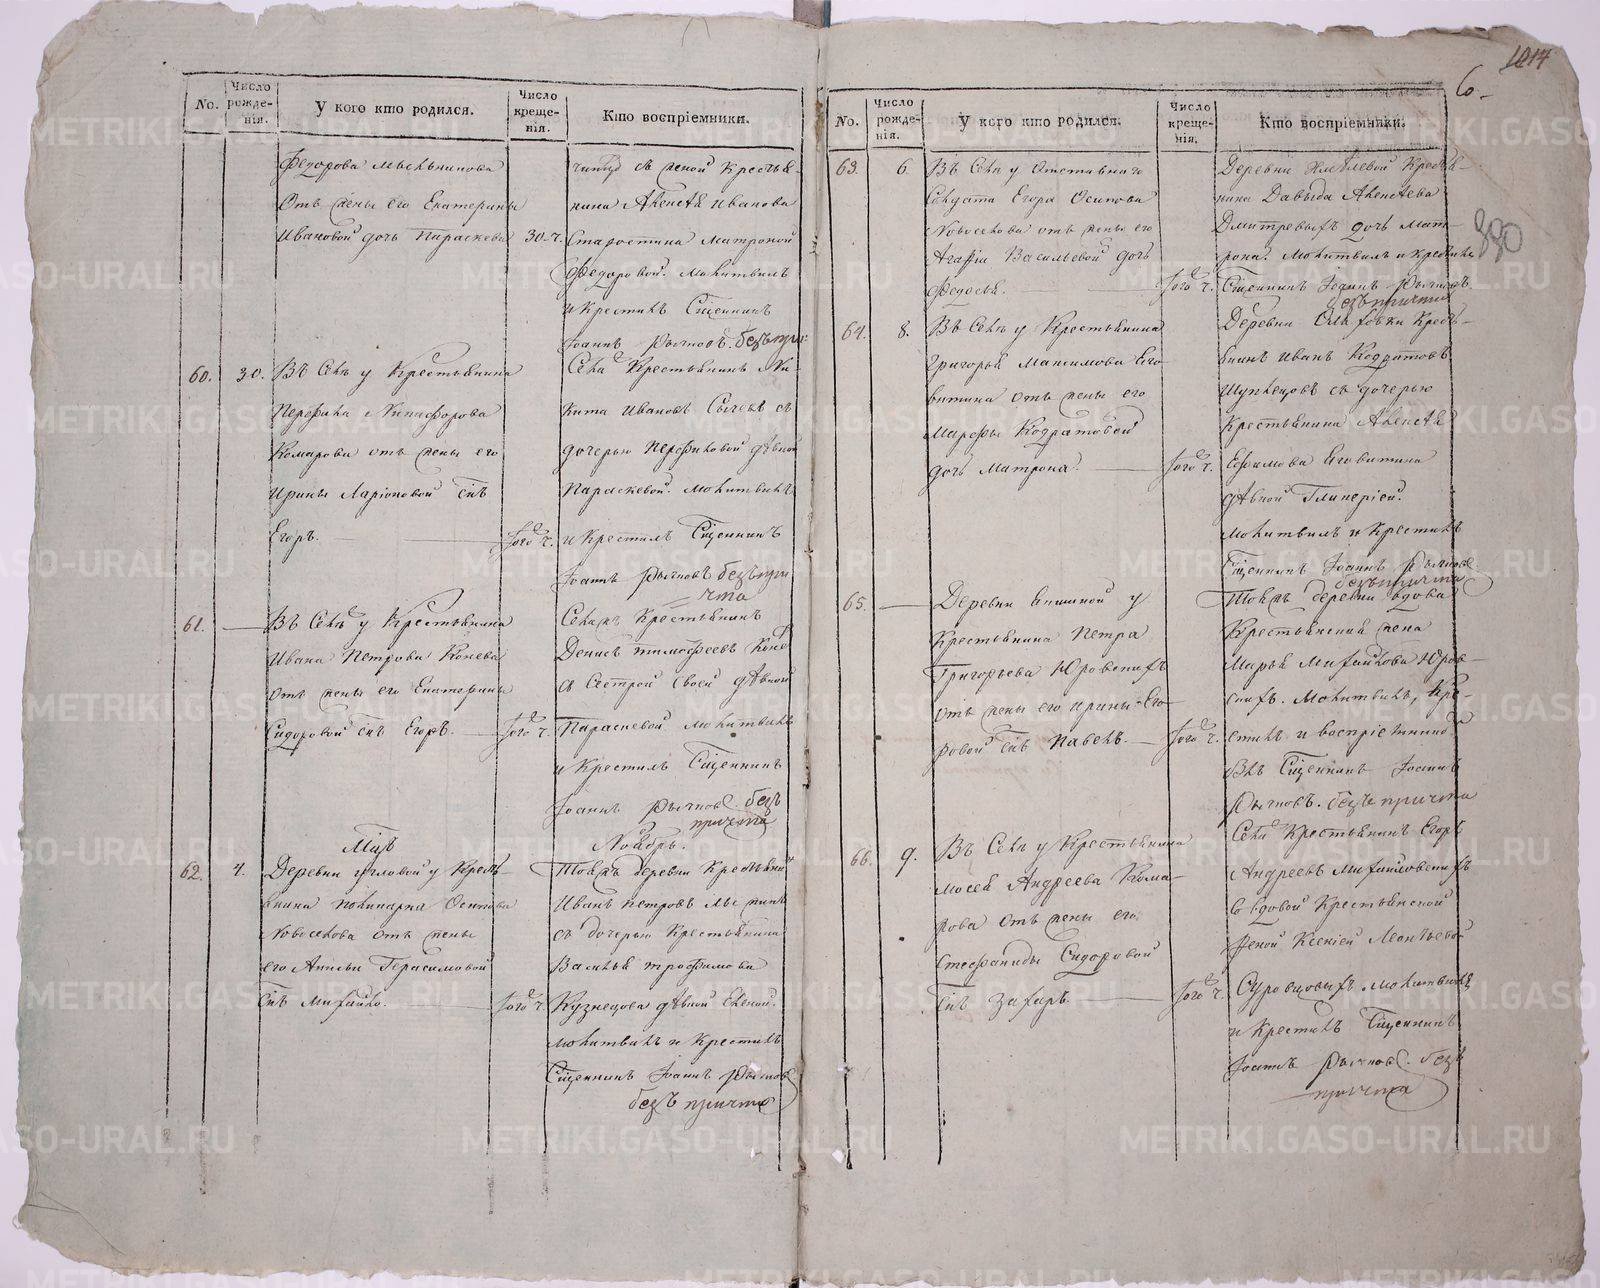 1014
6.
880
No.
Число рожде-нія.
У кого кто родился.
Число креще-нія.
Кто воспріемники.
Федорова
Отъ жены его Екатерины
Ивановой дочь Параскева
30. ч.
съ женой Крестья-
нина Алексѣя Иванова
Старостина Матроной
Федоровой. Молитвилъ
и крестилъ Сщенникъ
Іоаннъ Рычковъ. безъ при
60.
30.
Въ Селѣ у Крестьянина
Перфила Никифорова
Комарова отъ жены его
Ирины Ларіоновой снъ
Егоръ.
того ч.
Села Крестьянинъ Ни-
кита Ивановъ Сычевъ съ
дочерью Перфиловой дѣвкой
Параскевой. Молитвилъ
и крестилъ Сщенникъ
Іоаннъ Рычковъ безъ при
чта
61.
Въ Селѣ у Крестьянина
Ивана Петрова Конева
отъ жены его Екатерины
Сидоровой снъ Егоръ.
того ч.
Села Крестьянинъ
Денисъ Тимофеевъ Коне
съ Сестрой своей дѣвкой
Параскевой Молитвилъ
и Крестилъ Сщенникъ
Іоаннъ Рычковъ. безъ
причта
Ноябрь.
62.
4.
Деревни Угловой у Кресть-
янина Поликарпа Осипова
Новоселова отъ жены
его Герасимовой
снъ Михайло.
того ч.
Той же деревни Крестьянинъ
Иванъ Петровъ
съ дочерью Крестьянина
Василья Трофимова
Кузнецова дѣвкой Еленой.
Молитвилъ и Крестилъ
Сщенникъ Іоаннъ Рычковъ
безъ причта
No.
Число рожде-нія.
У кого кто родился.
Число креще-нія.
Кто воспріемники.
63.
6.
Въ Селѣ у Отставнаго
Солдата Егора Осипова
Новоселова отъ жены его
Агафіи Васильевой дочь
Федосья.
того ч.
Деревни Кресть-
нина Давыда Алексѣева
Дмитревыхъ дочь Мат-
рона. Молитвилъ и крестилъ
Сщенникъ Іоаннъ Рычковъ.
безъ причта
64.
8.
Въ Селѣ у Крестьянина
Григорья Максимова Его-
витина отъ жены его
Марфы Кодратовой
дочь Матрона.
того ч.
Деревни Кресть-
янинъ Иванъ Кодратовъ
съ дочерью
Крестьянина Алексѣя
Ефимова Еговитина
дѣвкой Гликеріей.
Молитвилъ и Крестилъ
Сщенникъ Іоаннъ Рычковъ
безъ причта
65.
Деревни у
Крестьянина Петра
Григорьева Юровскихъ
отъ жены его Ирины Его-
ровой снъ Павелъ.
того ч.
Той же деревни вдова
Крестьянская жена
Марья Михайлова Юров-
скихъ. Молитвилъ, Кре-
стилъ и воспріемни
Сщенникъ Іоаннъ
Рычковъ. безъ причта
66.
9.
Въ Селѣ у Крестьянина
Мосея Андреева Кома-
рова отъ жены его
Стефаниды Сидоровой
снъ Захаръ.
того ч.
Села Крестьянинъ Егоръ
Андреевъ
со вдовой Крестьянской
женой Ксеніей Леонтьевой
Суровцовыхъ Молитвилъ
и Крестилъ Сщенникъ
Іоаннъ Рычковъ. безъ
причта
METRIKI.GASO-URAL.RU